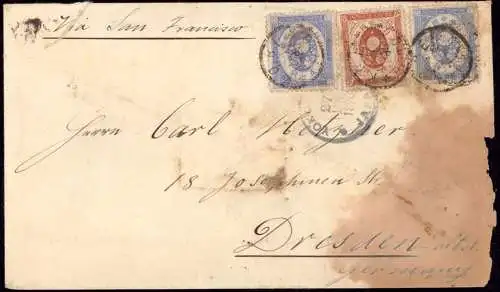 Via San Francisco
Herrn Carl Metzner
18 Josephinen Str
Dresden
Germany